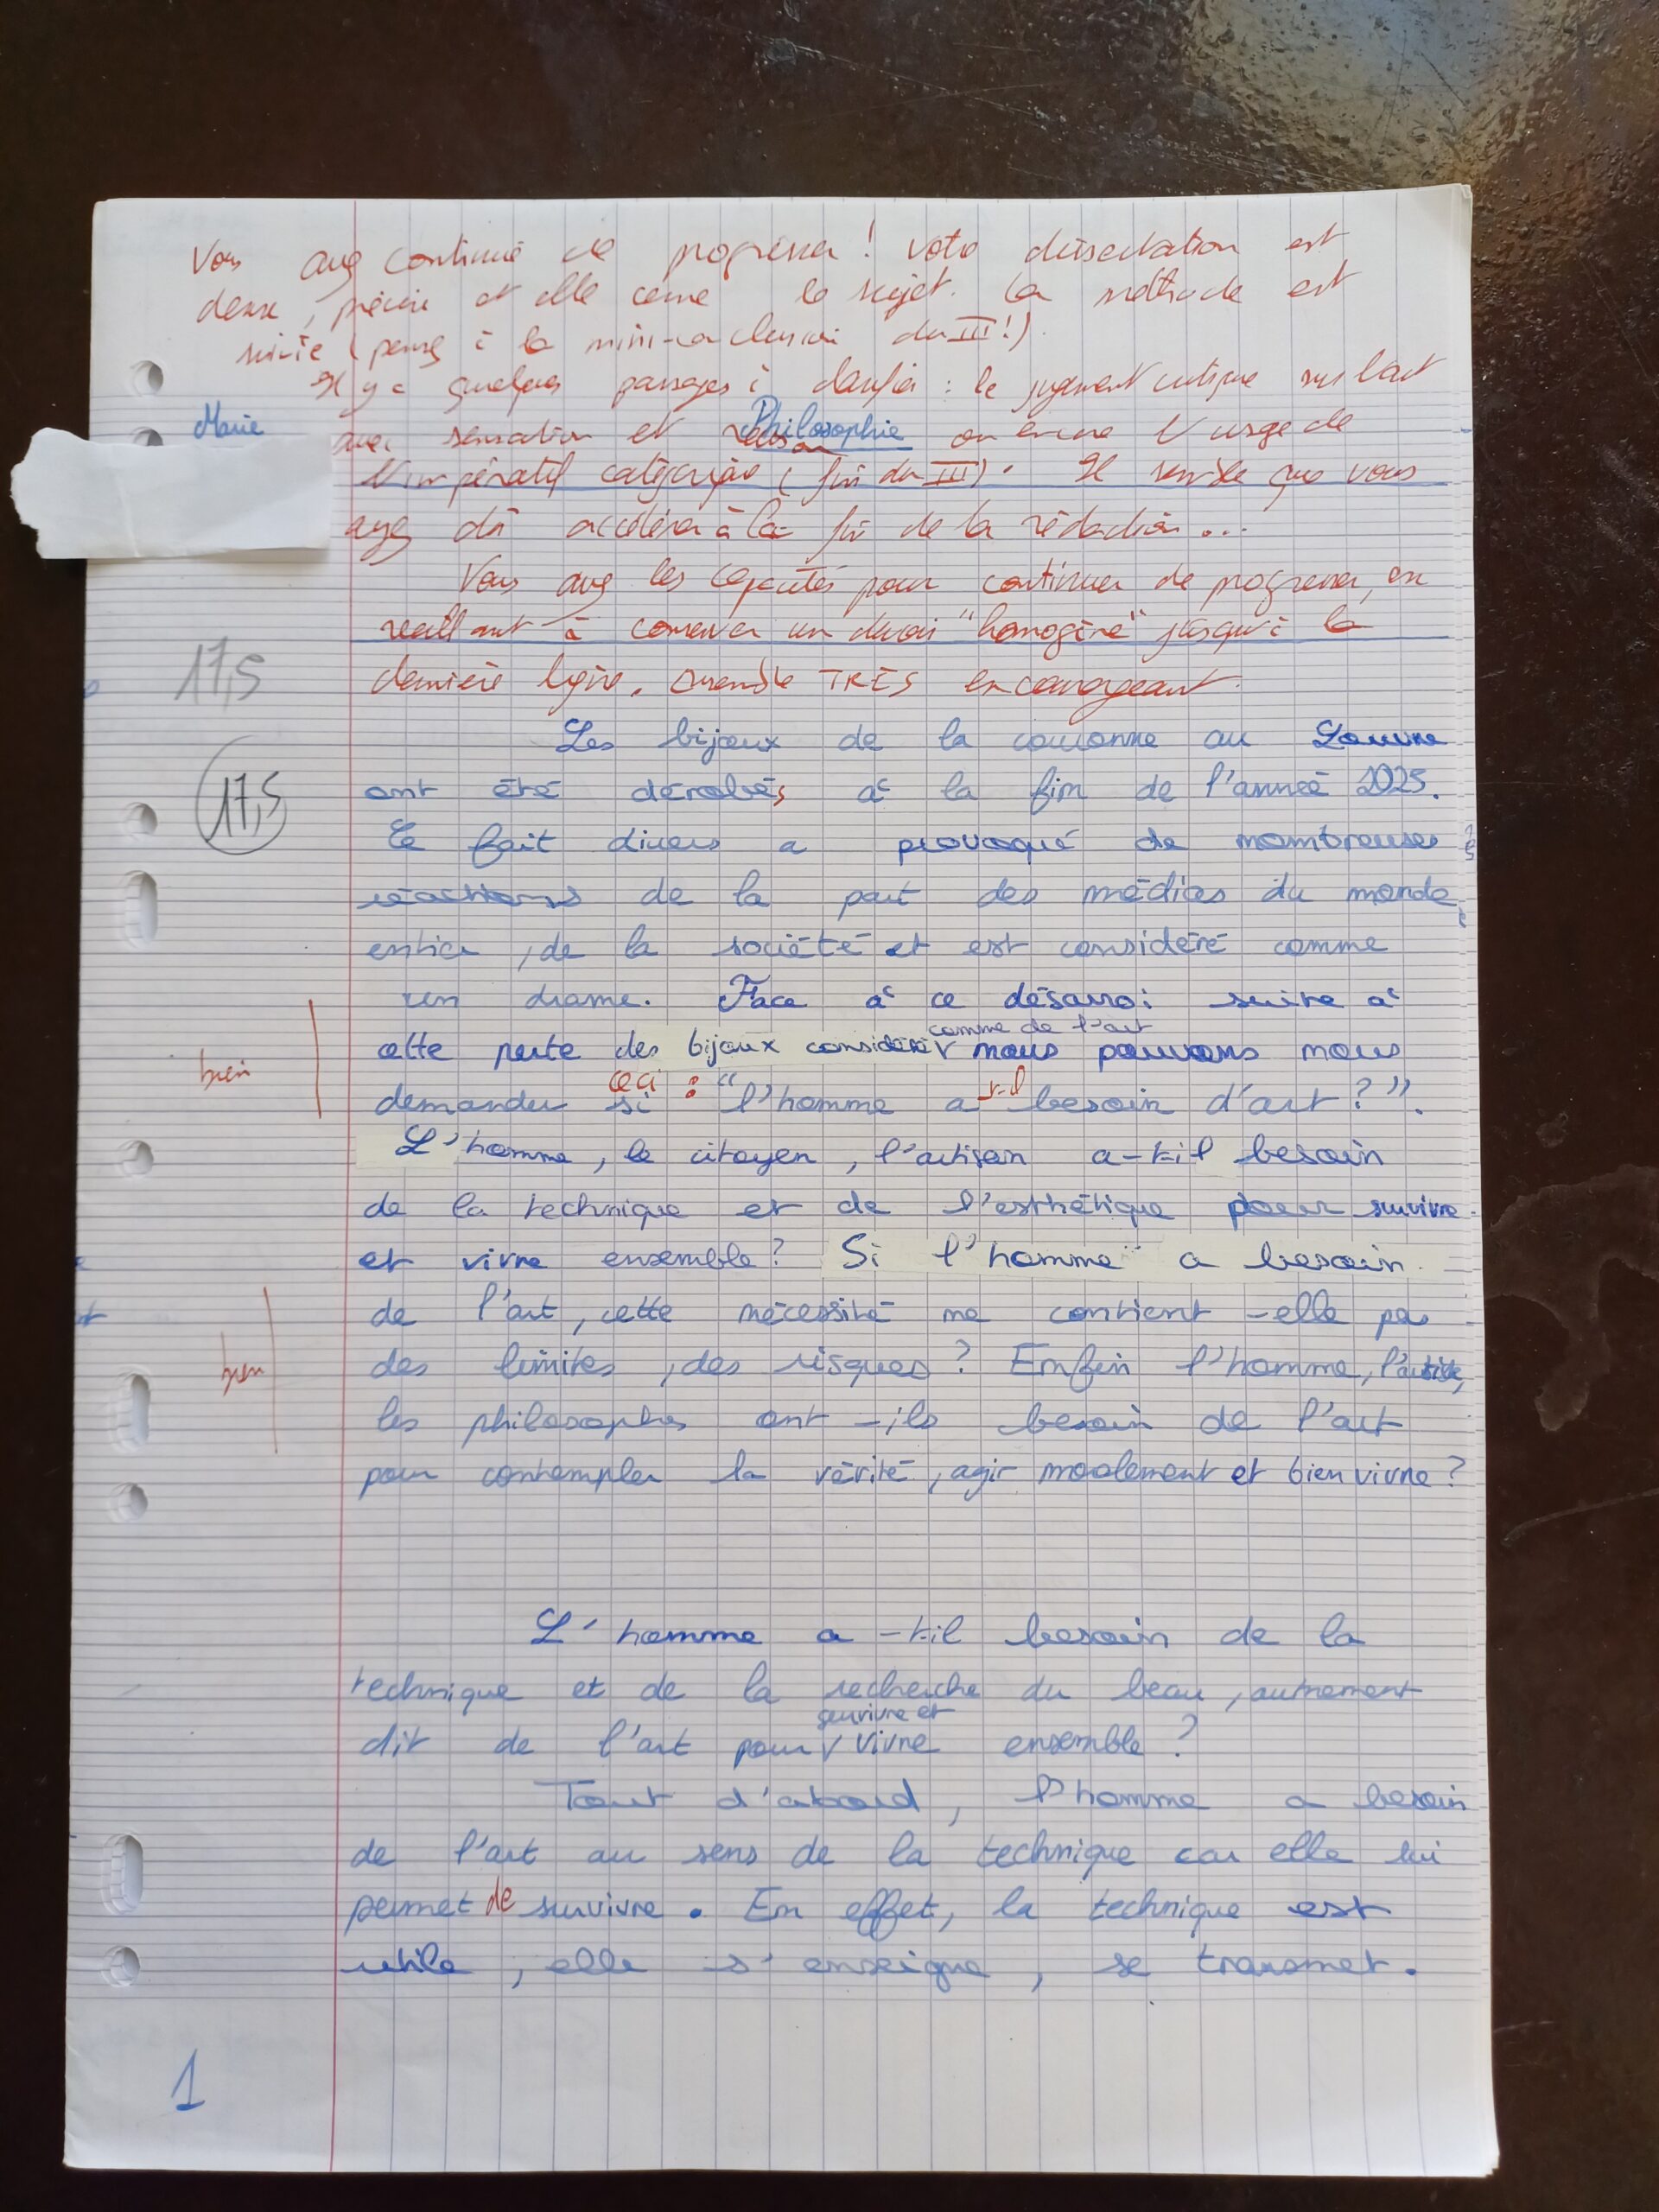 Vous avez continué de progresser ! Votre dissertation est
dense, précise et elle cerne le sujet. La méthode est
suivie (pensez à la mini-conclusion du III !).
Il y a quelques passages à clarifier : le jugement critique sur l'art
Marie
Philosophie
avec sensation et raison ou encore l'usage de
l'impératif catégorique (fin du III). Il semble que vous
ayez dû accélérer à la fin de la rédaction...
Vous avez les capacités pour continuer de progresser, en
veillant à conserver un devoir "homogène" jusqu'à la
dernière ligne. Ensemble TRES encourageant.
17,5
17,5
Les bijoux de la couronne au Louvre
ont été dérobés à la fin de l'anneé 2025.
Ce fait divers a provoqué de nombreuses
réactions de la part des médias du monde
entier, de la société et est considéré comme
un drame. Face à ce désarroi suite à
comme de l'art
cette perte des bijoux considéré nous pouvons nous
bien
ceci : -t-il
demander si "l'homme a besoin d'art ?".
L'homme, le citoyen, l'artisan a-t-il besoin
de la technique et de l'esthétique pour survivre
et vivre ensemble ? Si l'homme a besoin
de l'art, cette nécessité ne contient-elle pas
des limites, des risques ? Enfin l'homme, l'artiste,
bien
les philosophes ont-ils besoin de l'art
pour contempler la vérité, agir moralement et bien vivre ?
L'homme a-t-il besoin de la
technique et de la recherche du beau, autrement
survivre et
dit de l'art pour vivre ensemble ?
Tout d'abord, l'homme a besoin
de l'art au sens de la technique car elle lui
permet de survivre. En effet, la technique est
utile, elle s'enseigne, se transmet.
1